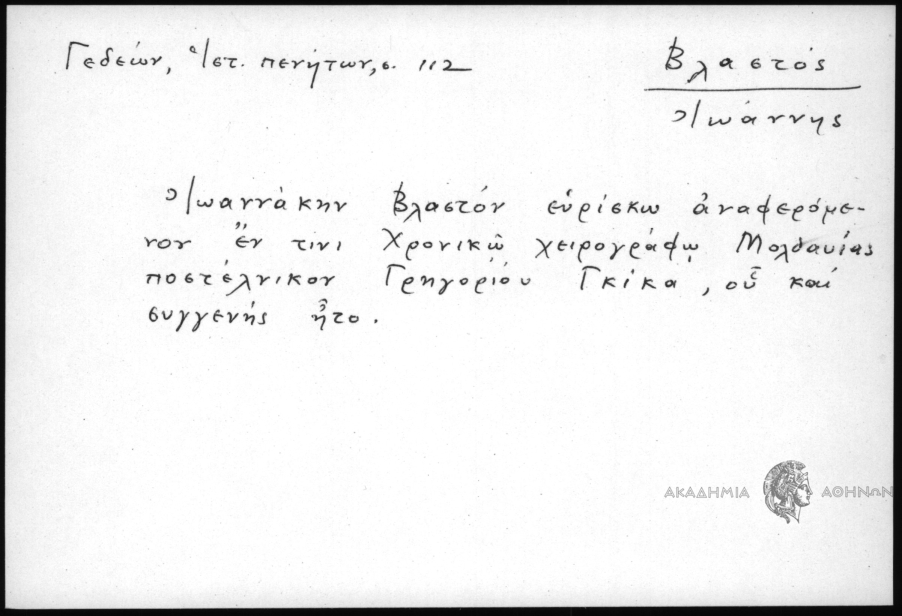 Γεδεών, Ἱστ. πενήτων, σ. 112
Βλαστός
Ἰωάννης
Ἰωαννάκην Βλαστόν εὑρίσκω ἀναφερόμε-
νον ἔν τινι Χρονικῷ χειρογράφῳ Μολδαυίας
ποστέλνικον Γρηγορίου Γκίκα, οὗ καί
συγγενής ἦτο.
ΑΚΑΔΗΜΙΑ ΑΘΗΝΩΝ